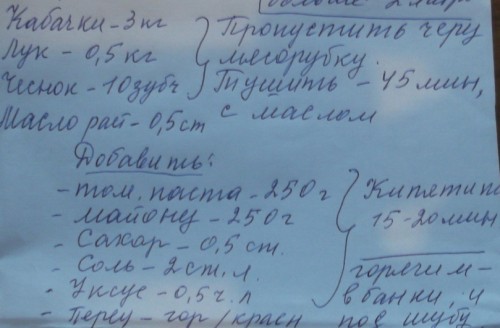 больше 2 литр
Кабачки - 3 кг
Лук - 0,5 кг
Чеснок - 10 зубч
Масло раст - 0,5 ст
Пропустить через
мясорубку.
Тушить - 45 мин,
с маслом
Добавить:
- том. паста - 250 г
- майонез - 250 г
- Сахар - 0,5 ст.
- Соль - 2 ст. л.
- Уксус - 0,5 ч. л
- Перец - гор/красн
Кипятить
15-20 мин
горячим -
в банки, и
под шубу